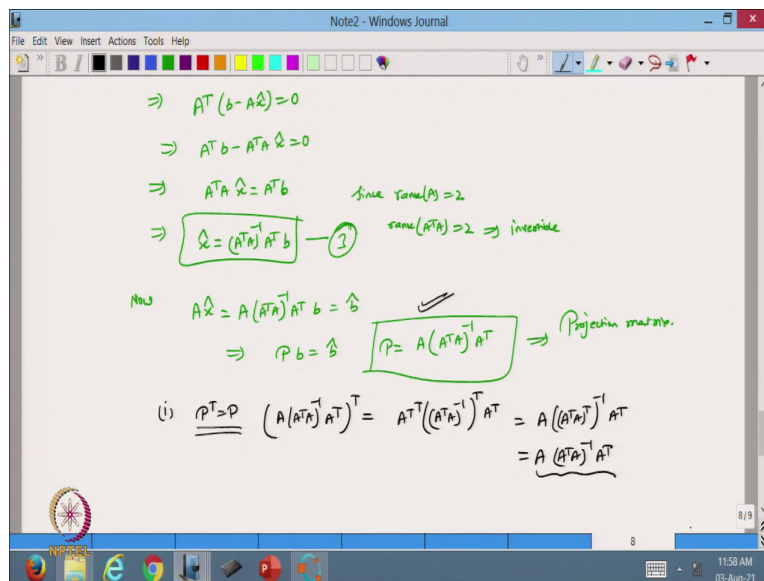 Note2 - Windows Journal
File Edit View Insert Actions Tools Help
⇒ Aᵀ(b-Ax̂)=0
⇒ Aᵀb-AᵀAx̂=0
⇒ AᵀAx̂=Aᵀb since rank(A)=2
⇒ x̂=(AᵀA)⁻¹Aᵀb — ③ rank(AᵀA)=2 ⇒ invertible
Now Ax̂ = A(AᵀA)⁻¹Aᵀ b = b̂
⇒ Pb = b̂ P= A(AᵀA)⁻¹Aᵀ ⇒ Projection matrix.
(i) Pᵀ=P (A(AᵀA)⁻¹Aᵀ)ᵀ = Aᵀᵀ((AᵀA)⁻¹)ᵀAᵀ = A((AᵀA)ᵀ)⁻¹Aᵀ
= A(AᵀA)⁻¹Aᵀ
8/9
8
NPTEL
11:58 AM
03-Aug-21